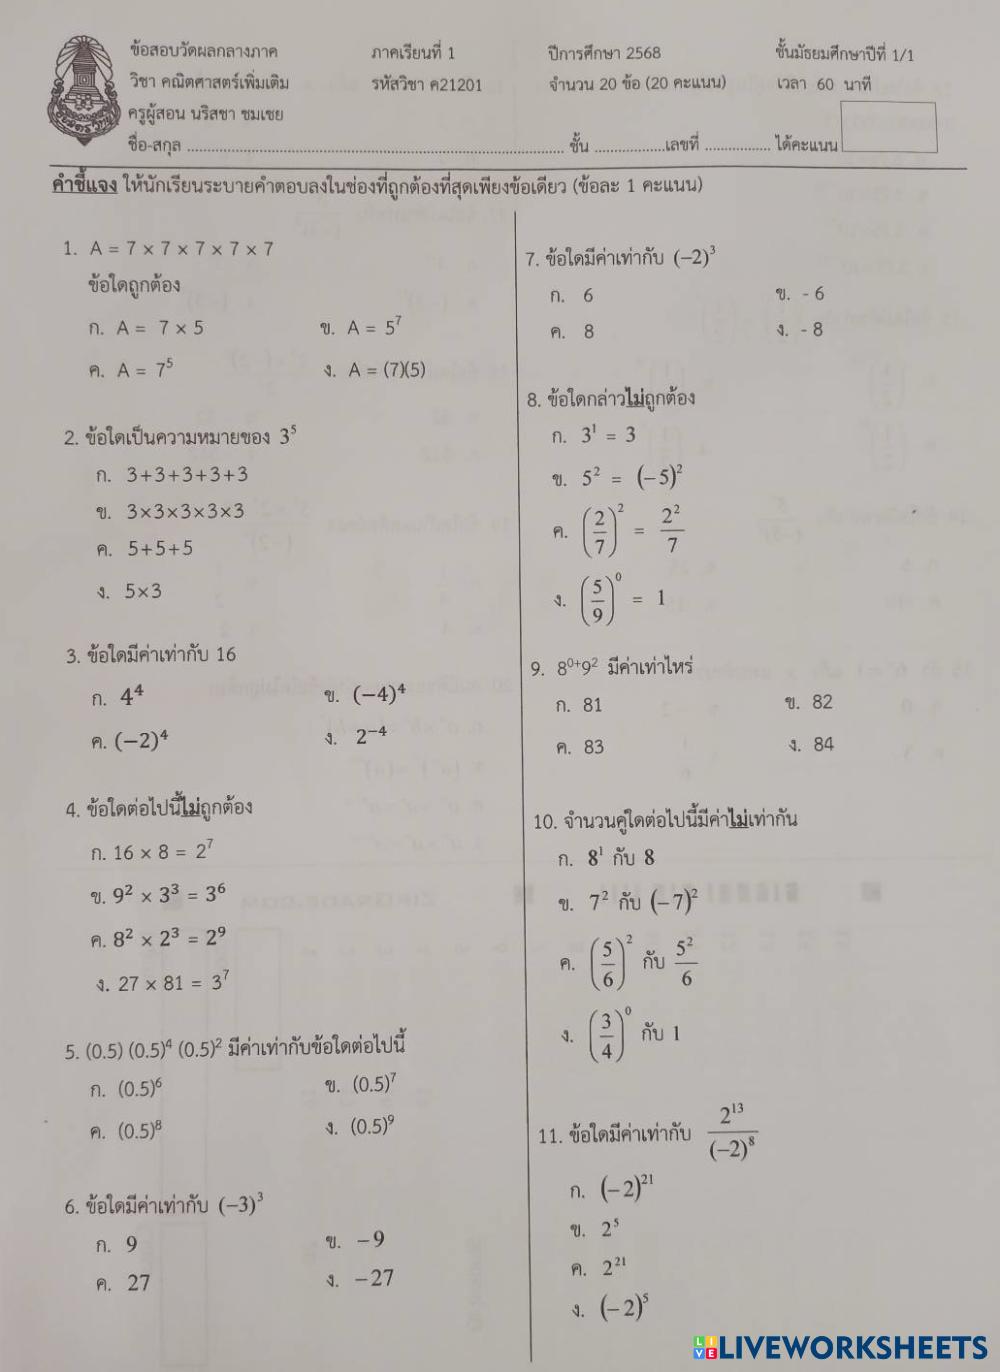 ข้อสอบวัดผลกลางภาค ภาคเรียนที่ 1 ปีการศึกษา 2568 ชั้นมัธยมศึกษาปีที่ 1/1
วิชา คณิตศาสตร์เพิ่มเติม รหัสวิชา ค21201 จำนวน 20 ข้อ (20 คะแนน) เวลา 60 นาที
ครูผู้สอน นริสชา ชมเชย
ชื่อ-สกุล ........................................ ชั้น ................เลขที่ ................ ได้คะแนน
คำชี้แจง ให้นักเรียนระบายคำตอบลงในช่องที่ถูกต้องที่สุดเพียงข้อเดียว (ข้อละ 1 คะแนน)
1. A = 7 × 7 × 7 × 7 × 7
ข้อใดถูกต้อง
ก. A = 7 × 5 ข. A = 5⁷
ค. A = 7⁵ ง. A = (7)(5)
2. ข้อใดเป็นความหมายของ 3⁵
ก. 3+3+3+3+3
ข. 3×3×3×3×3
ค. 5+5+5
ง. 5×3
3. ข้อใดมีค่าเท่ากับ 16
ก. 4⁴ ข. (−4)⁴
ค. (−2)⁴ ง. 2⁻⁴
4. ข้อใดต่อไปนี้ไม่ถูกต้อง
ก. 16 × 8 = 2⁷
ข. 9² × 3³ = 3⁶
ค. 8² × 2³ = 2⁹
ง. 27 × 81 = 3⁷
5. (0.5) (0.5)⁴ (0.5)² มีค่าเท่ากับข้อใดต่อไปนี้
ก. (0.5)⁶ ข. (0.5)⁷
ค. (0.5)⁸ ง. (0.5)⁹
6. ข้อใดมีค่าเท่ากับ (−3)³
ก. 9 ข. −9
ค. 27 ง. −27
7. ข้อใดมีค่าเท่ากับ (−2)³
ก. 6 ข. - 6
ค. 8 ง. - 8
8. ข้อใดกล่าวไม่ถูกต้อง
ก. 3¹ = 3
ข. 5² = (−5)²
ค. (2/7)² = 2²/7
ง. (5/9)⁰ = 1
9. 8⁰⁺9² มีค่าเท่าไหร่
ก. 81 ข. 82
ค. 83 ง. 84
10. จำนวนคู่ใดต่อไปนี้มีค่าไม่เท่ากัน
ก. 8¹ กับ 8
ข. 7² กับ (−7)²
ค. (5/6)² กับ 5²/6
ง. (3/4)⁰ กับ 1
11. ข้อใดมีค่าเท่ากับ 2¹³/(−2)⁸
ก. (−2)²¹
ข. 2⁵
ค. 2²¹
ง. (−2)⁵
LIVEWORKSHEETS